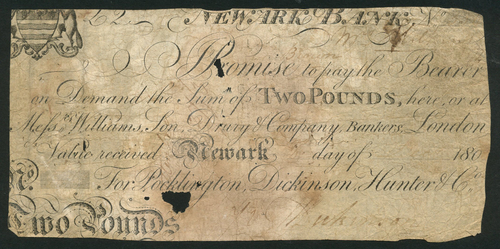 £2 NEWARK BANK, No
I Promise to pay the Bearer
on Demand the Sum of TWO POUNDS, here, or at
Messrs Williams, Son, Drury & Company, Bankers, London
Value received Newark day of 180
No. For Pocklington, Dickinson, Hunter & Co.
Two Pounds